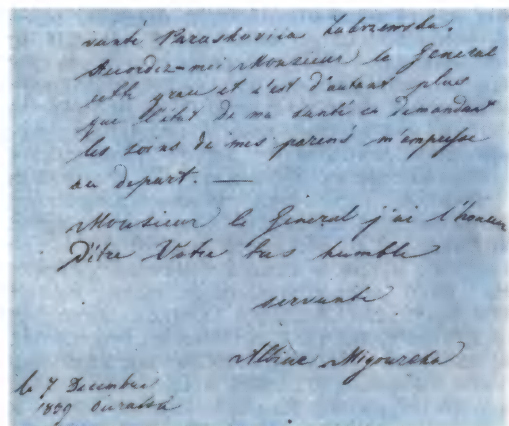 vante Paraskovica Zabrzewska.
Accordez-moi Monsieur le General
cette grace et c'est d'autant plus
que l'etat de ma santé en demandant
les soins de mes parens m'empresse
au depart. —
Monsieur le General j'ai l'honeur
D'être Votre tres humble
servante
Albine Migourska
le 7 Decembre
1839 Ouralsk